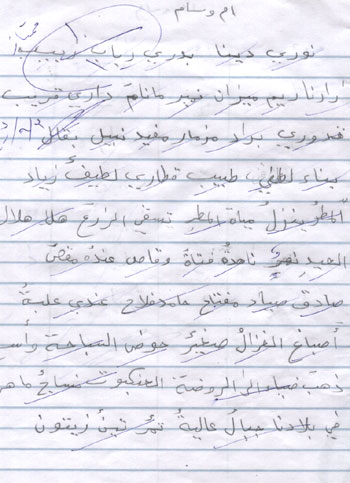 ام وسام
نوري دينا بدري رباب زينب
أرانا ريم ميزان نمير ما نام داري قريب
فدوري براد مزمار مفيد نبيل بقال
بناء لطفي طبيب قطاري لطيف زياد
المطر ينزل مياه المطر تسقي الزارع هلا هلال
العيد ناهدة فتاة وقاص عنده مقص
صادق صياد مفتاح حامد فلاح عندي علبة
أصباغ الغزال صغير حوض السباحة
ذهب ضياء الى الروضة العنكبوت نساج ماهر
في بلادنا جبال عالية تمر تين زيتون